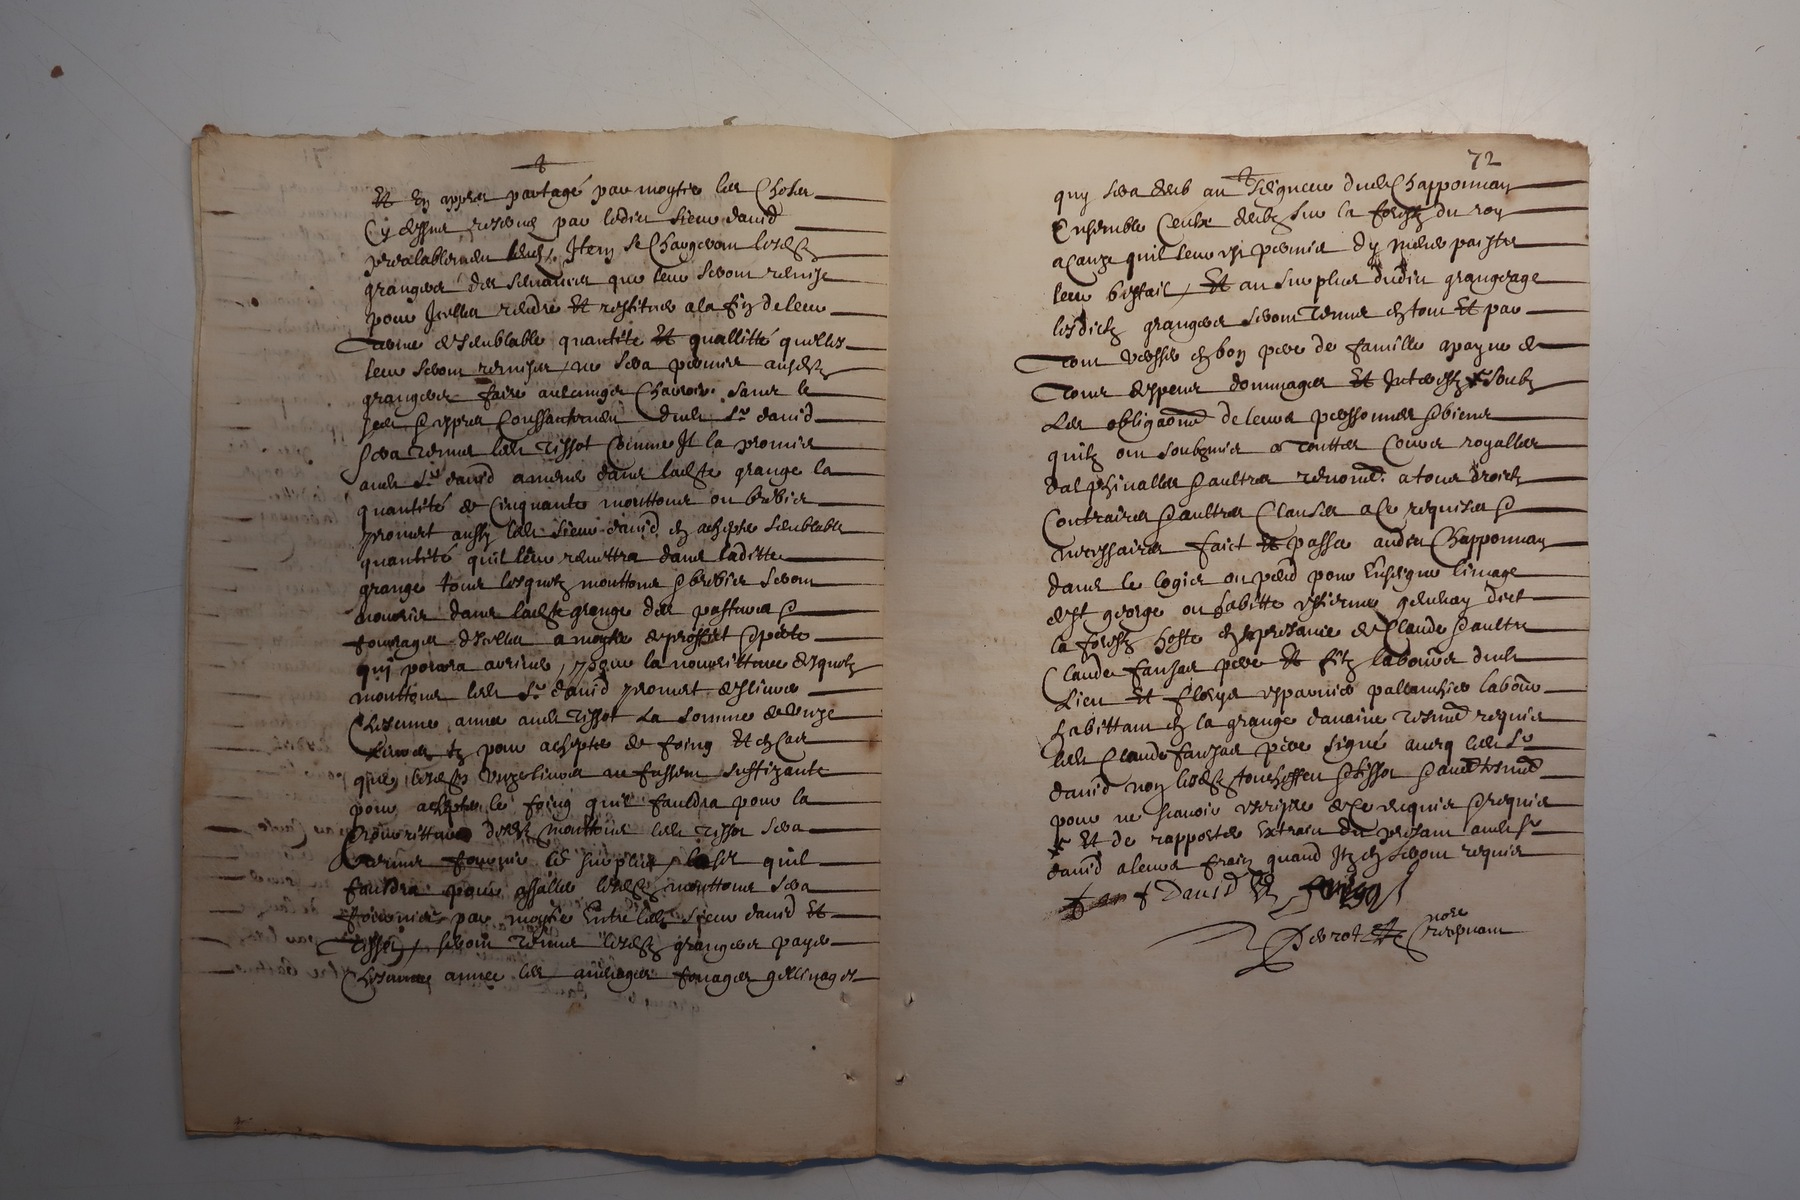 Et en appres partagé par moytie les choses
cy dessus reservés par ledict sieur david
prealablement Item se chargeront lesdictz
grangers des semances que leur seront remise
pour Icelles rendre Et restituer a la fin de leur
terme de semblable quantité Et quallitté quelles
leur seront remises, ne sera permis ausdictz
grangers faire aulcunges charrois sans le
sceu & expres conssantement dudt Sr david
sera tenus ledt tissot comme Il la promis
audt Sr david amener dans ladte grange la
quantité de cinquante mouttons ou brebis
promet aussy ledt sieur david den achepter semblable
quantité quil leur remettra dans laditte
grange tous lesquelz mouttons & brebis seront
nourris dans ladte grange des pasturas &
fourrages dicelles a moytie de proffit & perte
qui porrea arriver, & pour la nourritture desquelz
mouttons ledt Sr david promet deslivrer
chescune annee audt tissot La somme de unze
Livres tz pour achepter de foing Et en cas
que lesdes unze livres ne fussent suffizante
pour achepter le foing quil fauldra pour la
nourritture desdtz mouttons ledt tissot sera
tenus fournir le surplus, le sel quil
fauldra pour assaller lesdtz mouttons sera
fourniee par moytie Entre ledt sieur david Et
tissot, seront tenus lesdtz grangers payer
chescune annee les mesnages fouages gellinages
72
quy sera deub au seigneur dudt Chapponnay
Ensemble Ceulx deubz sur la forestz du roy
a cause quil leur est permis dy mener paistre
leur bestail, Et au surplus dudict grangeage
lesdictz grangers seront tenus en tout Et par
tout verser en bon pere de famille a payne de
tous despens dommages Et Interestz soubz
Les obligaons de leurs personnes & biens
quilz ont soubzmis a touttes cours royalles
dalphinalles & aultres renond. a tous droictz
contraires & aultres clauses a ce requises &
necessaires faict Et passer audict Chapponnay
dans le logis ou pend pour Enseigne limage
de st george ou habitte estienne gelnhay dict
la forestz hoste en presance de Claude & aultre
Claude fansar pere Et filz labours dudt
Lieu Et labour
habittant en la grange danaine tesmd requis
ledt Claude fansar pere signé aucq ledt Sr
david non lesdtz & tissot & aultres tesmd
pour ne scavoir escripre de ce enquis & requis
Et de rapporter Extraict du presant audt Sr
david a leurs fraiz quand Ilz en seront requis
David
nore